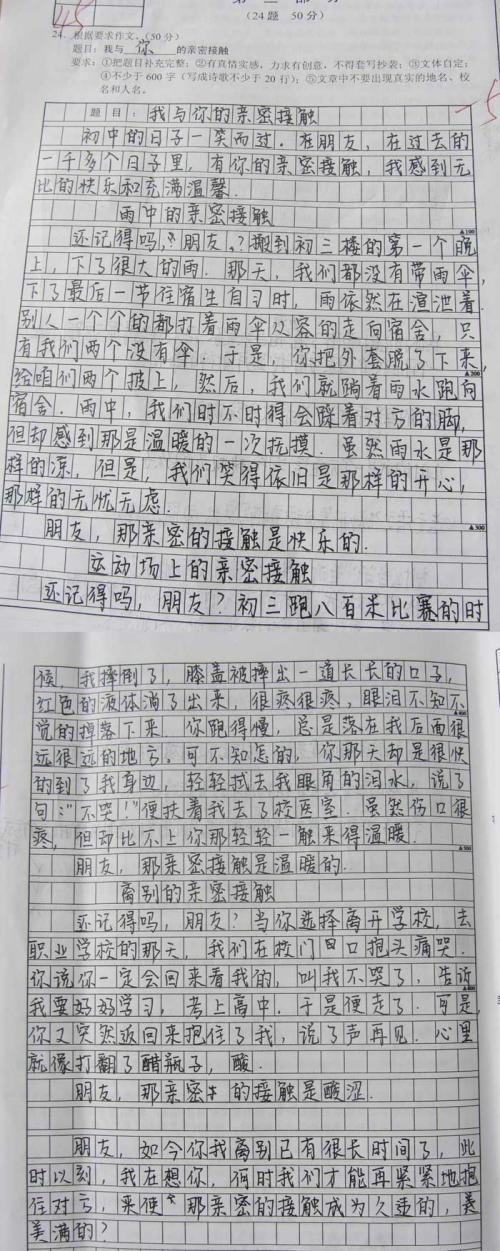 第二部分
(24题 50分)
45
24. 根据要求作文。(50分)
题目:我与 你 的亲密接触
要求:①把题目补充完整;②有真情实感,力求有创意,不得套写抄袭;③文体自定;
④不少于600字(写成诗歌不少于20行);⑤文章中不要出现真实的地名、校
名和人名。
-5
题目:我与你的亲密接触
初中的日子一笑而过.在朋友,在过去的
一千多个日子里,有你的亲密接触,我感到无
比的快乐和充满温馨.
▲100
雨中的亲密接触
还记得吗,“朋友,?搬到初三楼的第一个晚
上,下了很大的雨.那天,我们都没有带雨伞,
下了最后一节住宿生自习时,雨依然在渲泄着.
别人一个个的都打着雨伞从容的走向宿舍,只
有我们两个没有伞.于是,你把外套脱了下来,
▲200
给咱们两个披上,然后,我们就踏着雨水跑向
宿舍.雨中,我们时不时得会踩着对方的脚,
但却感到那是温暖的一次抚摸.虽然雨水是那
样的凉,但是,我们笑得依旧是那样的开心,
那样的无忧无虑.
▲300
朋友,那亲密的接触是快乐的.
运动场上的亲密接触
还记得吗,朋友?初三跑八百米比赛的时
候,我摔倒了,膝盖被摔出一道长长的口子,
红色的液体淌了出来,很疼很疼,眼泪不知不
觉的掉落下来.你跑得慢,总是落在我后面很
远很远的地方.可不知怎的,你那天却是很快
的到了我身边,轻轻拭去我眼角的泪水,说了
句:“不哭!”便扶着我去了校医室.虽然伤口很
疼,但却比不上你那轻轻一触来得温暖.
▲500
朋友,那亲密接触是温暖的.
离别的亲密接触
还记得吗,朋友?当你选择离开学校,去
职业学校的那天,我们在校门口抱头痛哭.
你说你一定会回来看我的,叫我不哭了,告诉
▲600
我要好好学习,考上高中.于是便走了.可是,
你又突然返回来抱住了我,说了声再见.心里
就像打翻了醋瓶子,酸.
朋友,那亲密的接触是酸涩.
朋友,如今你我离别已有很长时间了,此
时以刻,我在想你,何时我们才能再紧紧地抱
住对方,来使那亲密的接触成为久违的,美
美满的?